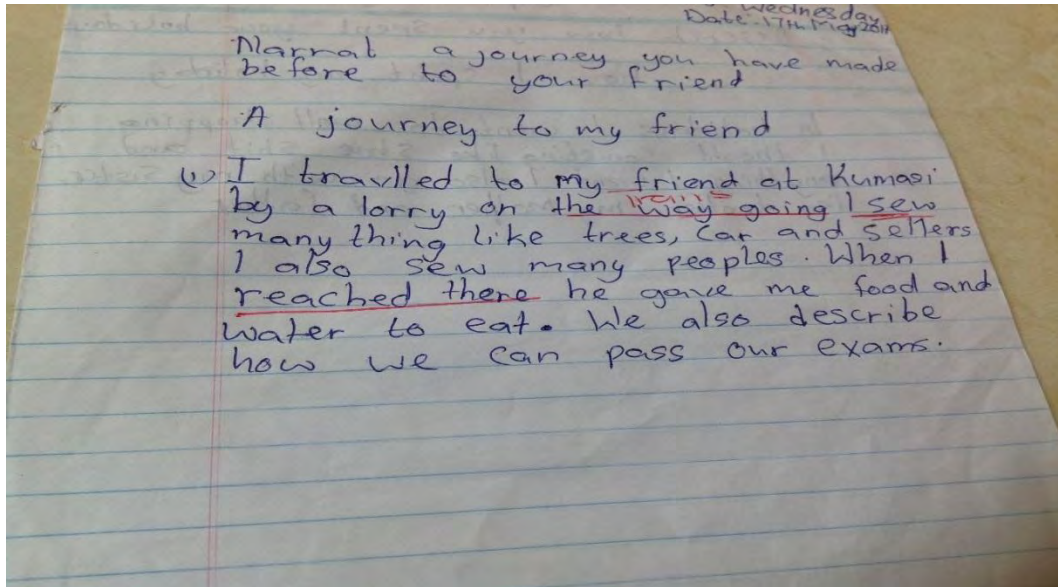 Wednesday
Date: 17th May 2017
Narrat a journey you have made
before to your friend
A journey to my friend
(1) I travlled to my friend at Kumasi
by a lorry on the way going I sew
many thing like trees, Car and sellers
I also sew many peoples. When I
reached there he gave me food and
water to eat. We also describe
how we can pass our exams.